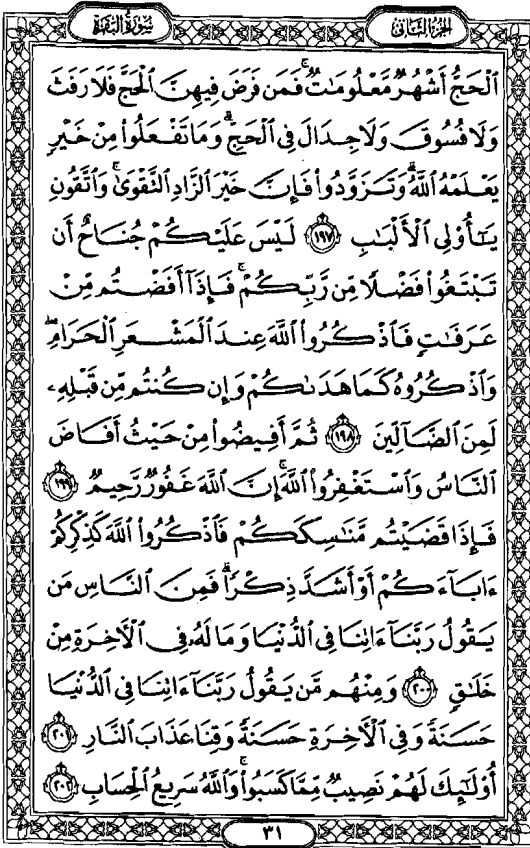 سُورَةُ البَقَرَةِ
الجُزْءُ الثَّانِي
ٱلْحَجُّ أَشْهُرٌ مَّعْلُومَـٰتٌ ۚ فَمَن فَرَضَ فِيهِنَّ ٱلْحَجَّ فَلَا رَفَثَ
وَلَا فُسُوقَ وَلَا جِدَالَ فِى ٱلْحَجِّ ۗ وَمَا تَفْعَلُوا۟ مِنْ خَيْرٍ
يَعْلَمْهُ ٱللَّهُ ۗ وَتَزَوَّدُوا۟ فَإِنَّ خَيْرَ ٱلزَّادِ ٱلتَّقْوَىٰ ۚ وَٱتَّقُونِ
يَـٰٓأُو۟لِى ٱلْأَلْبَـٰبِ ١٩٧ لَيْسَ عَلَيْكُمْ جُنَاحٌ أَن
تَبْتَغُوا۟ فَضْلًا مِّن رَّبِّكُمْ ۚ فَإِذَآ أَفَضْتُم مِّنْ
عَرَفَـٰتٍ فَٱذْكُرُوا۟ ٱللَّهَ عِندَ ٱلْمَشْعَرِ ٱلْحَرَامِ ۖ
وَٱذْكُرُوهُ كَمَا هَدَىٰكُمْ وَإِن كُنتُم مِّن قَبْلِهِۦ
لَمِنَ ٱلضَّآلِّينَ ١٩٨ ثُمَّ أَفِيضُوا۟ مِنْ حَيْثُ أَفَاضَ
ٱلنَّاسُ وَٱسْتَغْفِرُوا۟ ٱللَّهَ ۚ إِنَّ ٱللَّهَ غَفُورٌ رَّحِيمٌ ١٩٩
فَإِذَا قَضَيْتُم مَّنَـٰسِكَكُمْ فَٱذْكُرُوا۟ ٱللَّهَ كَذِكْرِكُمْ
ءَابَآءَكُمْ أَوْ أَشَدَّ ذِكْرًا ۗ فَمِنَ ٱلنَّاسِ مَن
يَقُولُ رَبَّنَآ ءَاتِنَا فِى ٱلدُّنْيَا وَمَا لَهُۥ فِى ٱلْـَٔاخِرَةِ مِنْ
خَلَـٰقٍ ٢٠٠ وَمِنْهُم مَّن يَقُولُ رَبَّنَآ ءَاتِنَا فِى ٱلدُّنْيَا
حَسَنَةً وَفِى ٱلْـَٔاخِرَةِ حَسَنَةً وَقِنَا عَذَابَ ٱلنَّارِ ٢٠١
أُو۟لَـٰٓئِكَ لَهُمْ نَصِيبٌ مِّمَّا كَسَبُوا۟ ۚ وَٱللَّهُ سَرِيعُ ٱلْحِسَابِ ٢٠٢
٣١